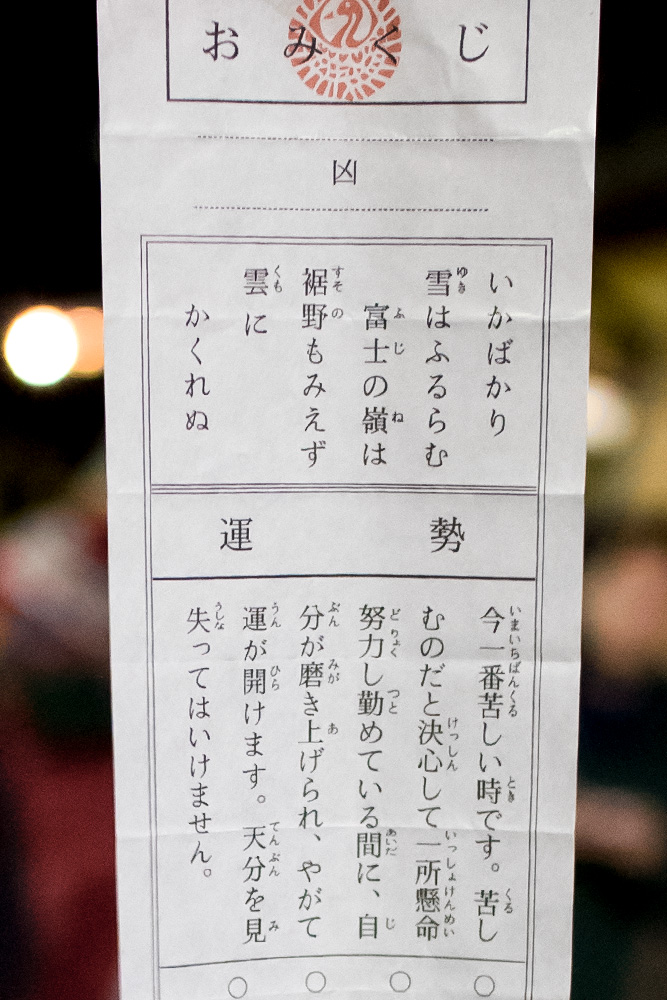 おみくじ
凶
いかばかり
雪はふるらむ
富士の嶺は
裾野もみえず
雲に
かくれぬ
運勢
今一番苦しい時です。苦し
むのだと決心して一所懸命
努力し勤めている間に、自
分が磨き上げられ、やがて
運が開けます。天分を見
失ってはいけません。